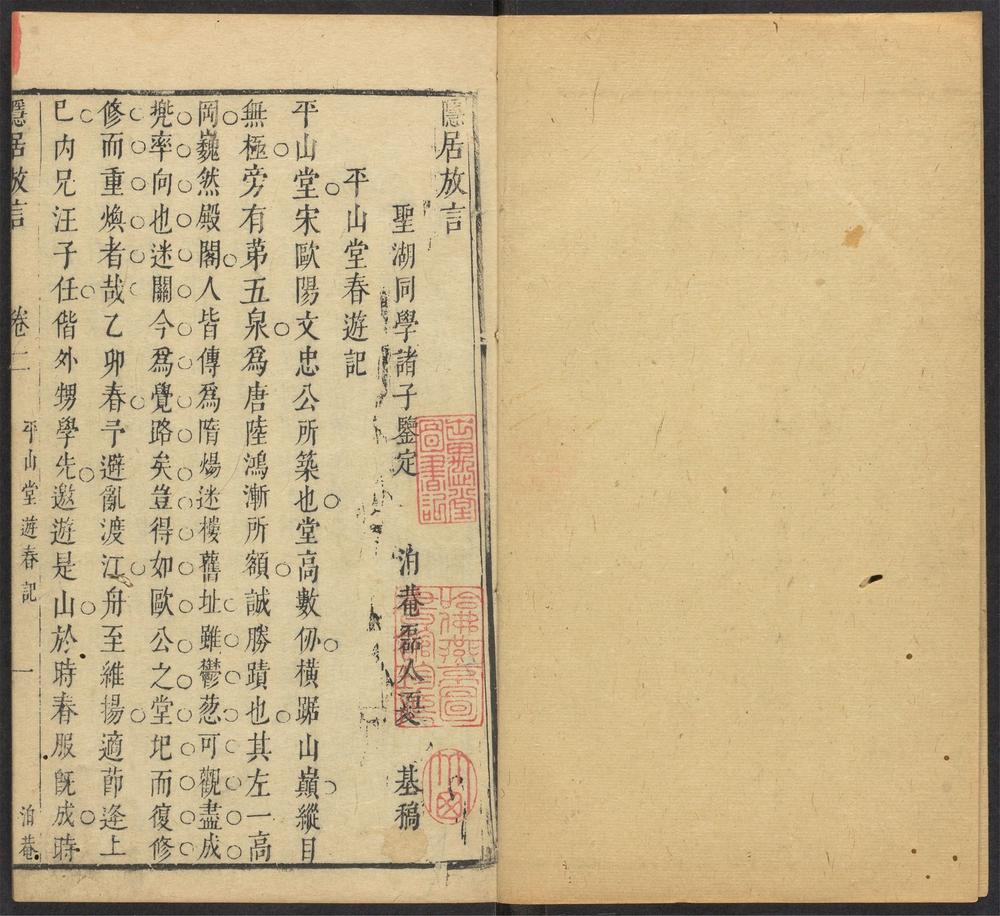 隱居放言
聖湖同學諸子鑒定　泊菴磊人夏　基稿
平山堂春遊記
平山堂宋歐陽文忠公所築也堂高數仞橫踞山巔縱目
無極旁有苐五泉爲唐陸鴻漸所額誠勝蹟也其左一高
岡巍然殿閣人皆傳爲隋煬迷樓舊址雖鬱葱可觀盡成
兠率向也迷關今爲覺路矣豈得如歐公之堂圯而復修
修而重煥者哉乙卯春予避亂渡江舟至維揚適節逢上
巳內兄汪子任偕外甥學先邀遊是山於時春服旣成時
隱居放言　卷二　平山堂遊春記　一　泊菴